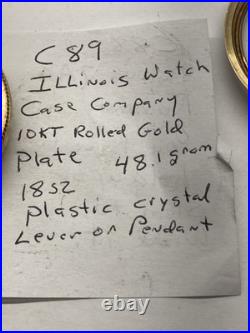 C89
Illinois Watch
Case Company
10KT Rolled Gold
Plate 48.1 gram
18sz
plastic crystal
Lever or Pendant